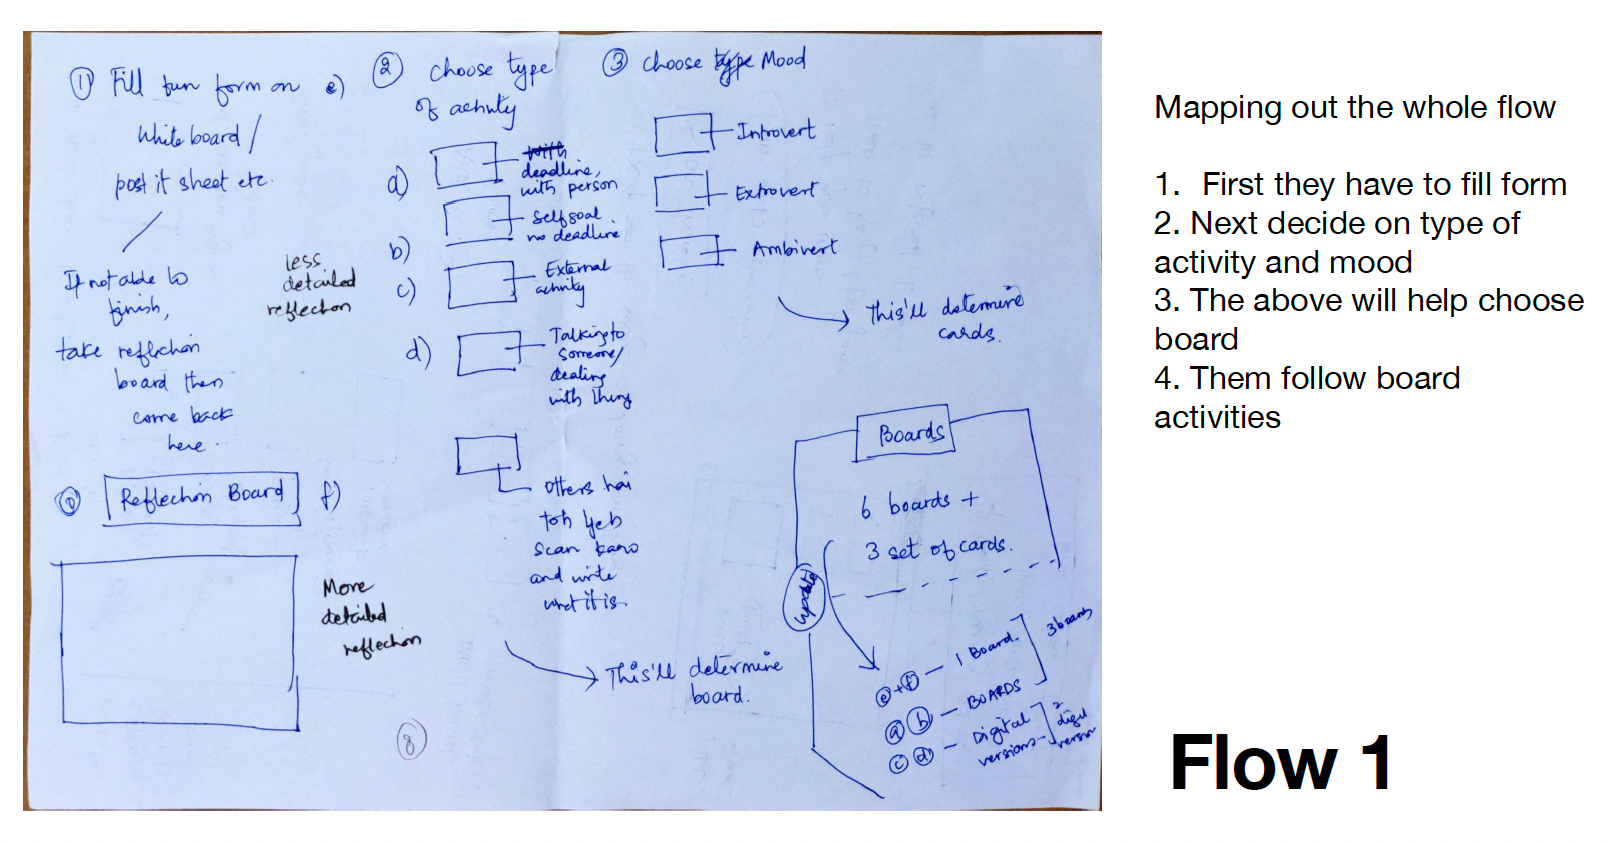 ① Fill fun form on e)
White board /
post it sheet etc.
If not able to
finish,
take reflection
board then
come back
here ..
less
detailed
reflection
Reflection Board f)
More
detailed
reflection
② choose type
of activity
a) deadline,
with person
b) Self goal
no deadline
c) External
activity
d) Talking to
someone/
dealing
with thing
others hai
toh yeh
scan karo
and write
what it is.
This'll determine
board.
8
③ choose type Mood
Introvert
Extrovert
Ambivert
This'll determine
cards.
Boards
6 boards +
3 set of cards.
update
e + f — 1 Board.
3 boards
a b — BOARDS
c d — Digital
versions
2
digi
version
Mapping out the whole flow
1. First they have to fill form
2. Next decide on type of
activity and mood
3. The above will help choose
board
4. Them follow board
activities
Flow 1